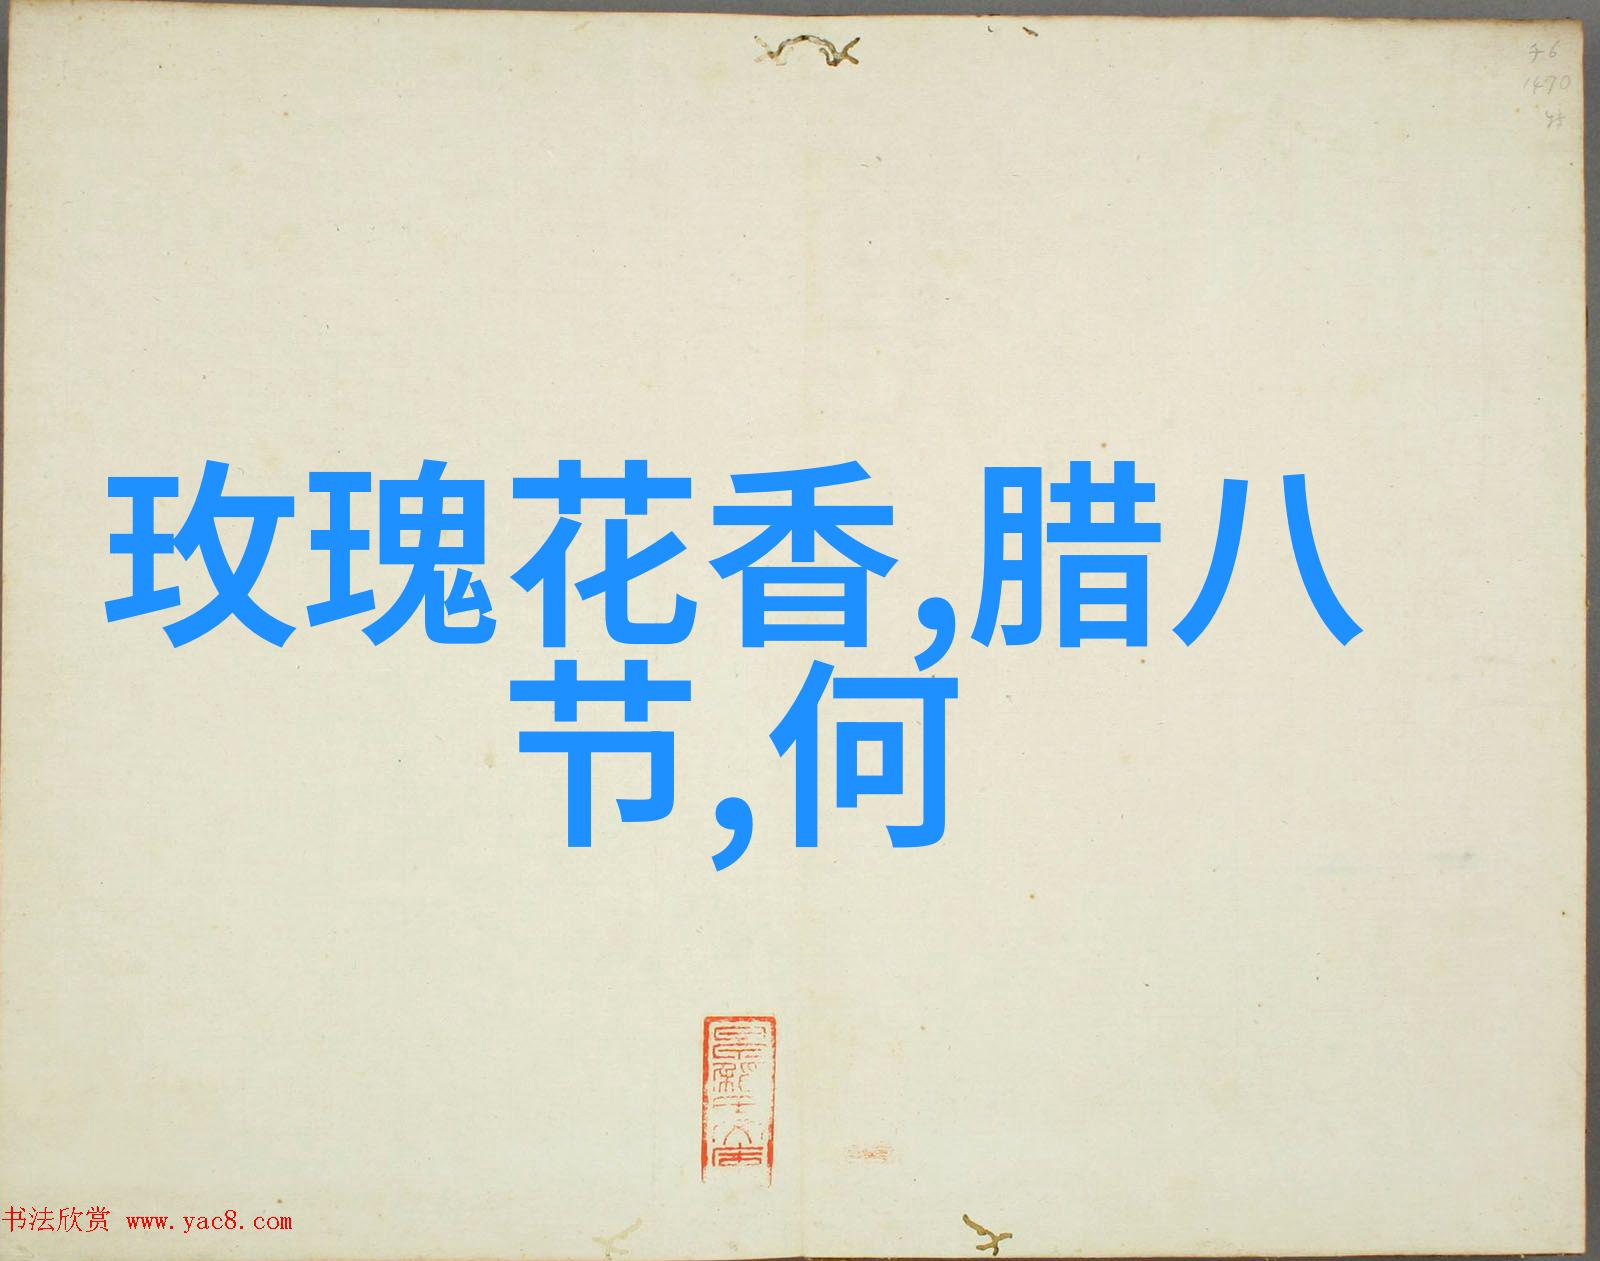 1470
玫瑰花香,腊八
节,何
书法欣赏 www.yac8.com